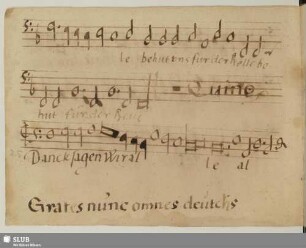 le behut uns für der Helle be
hut für der Hell
Quinte
Danck sagen wir al le al
Grates nunc omnes deutchs
SLUB